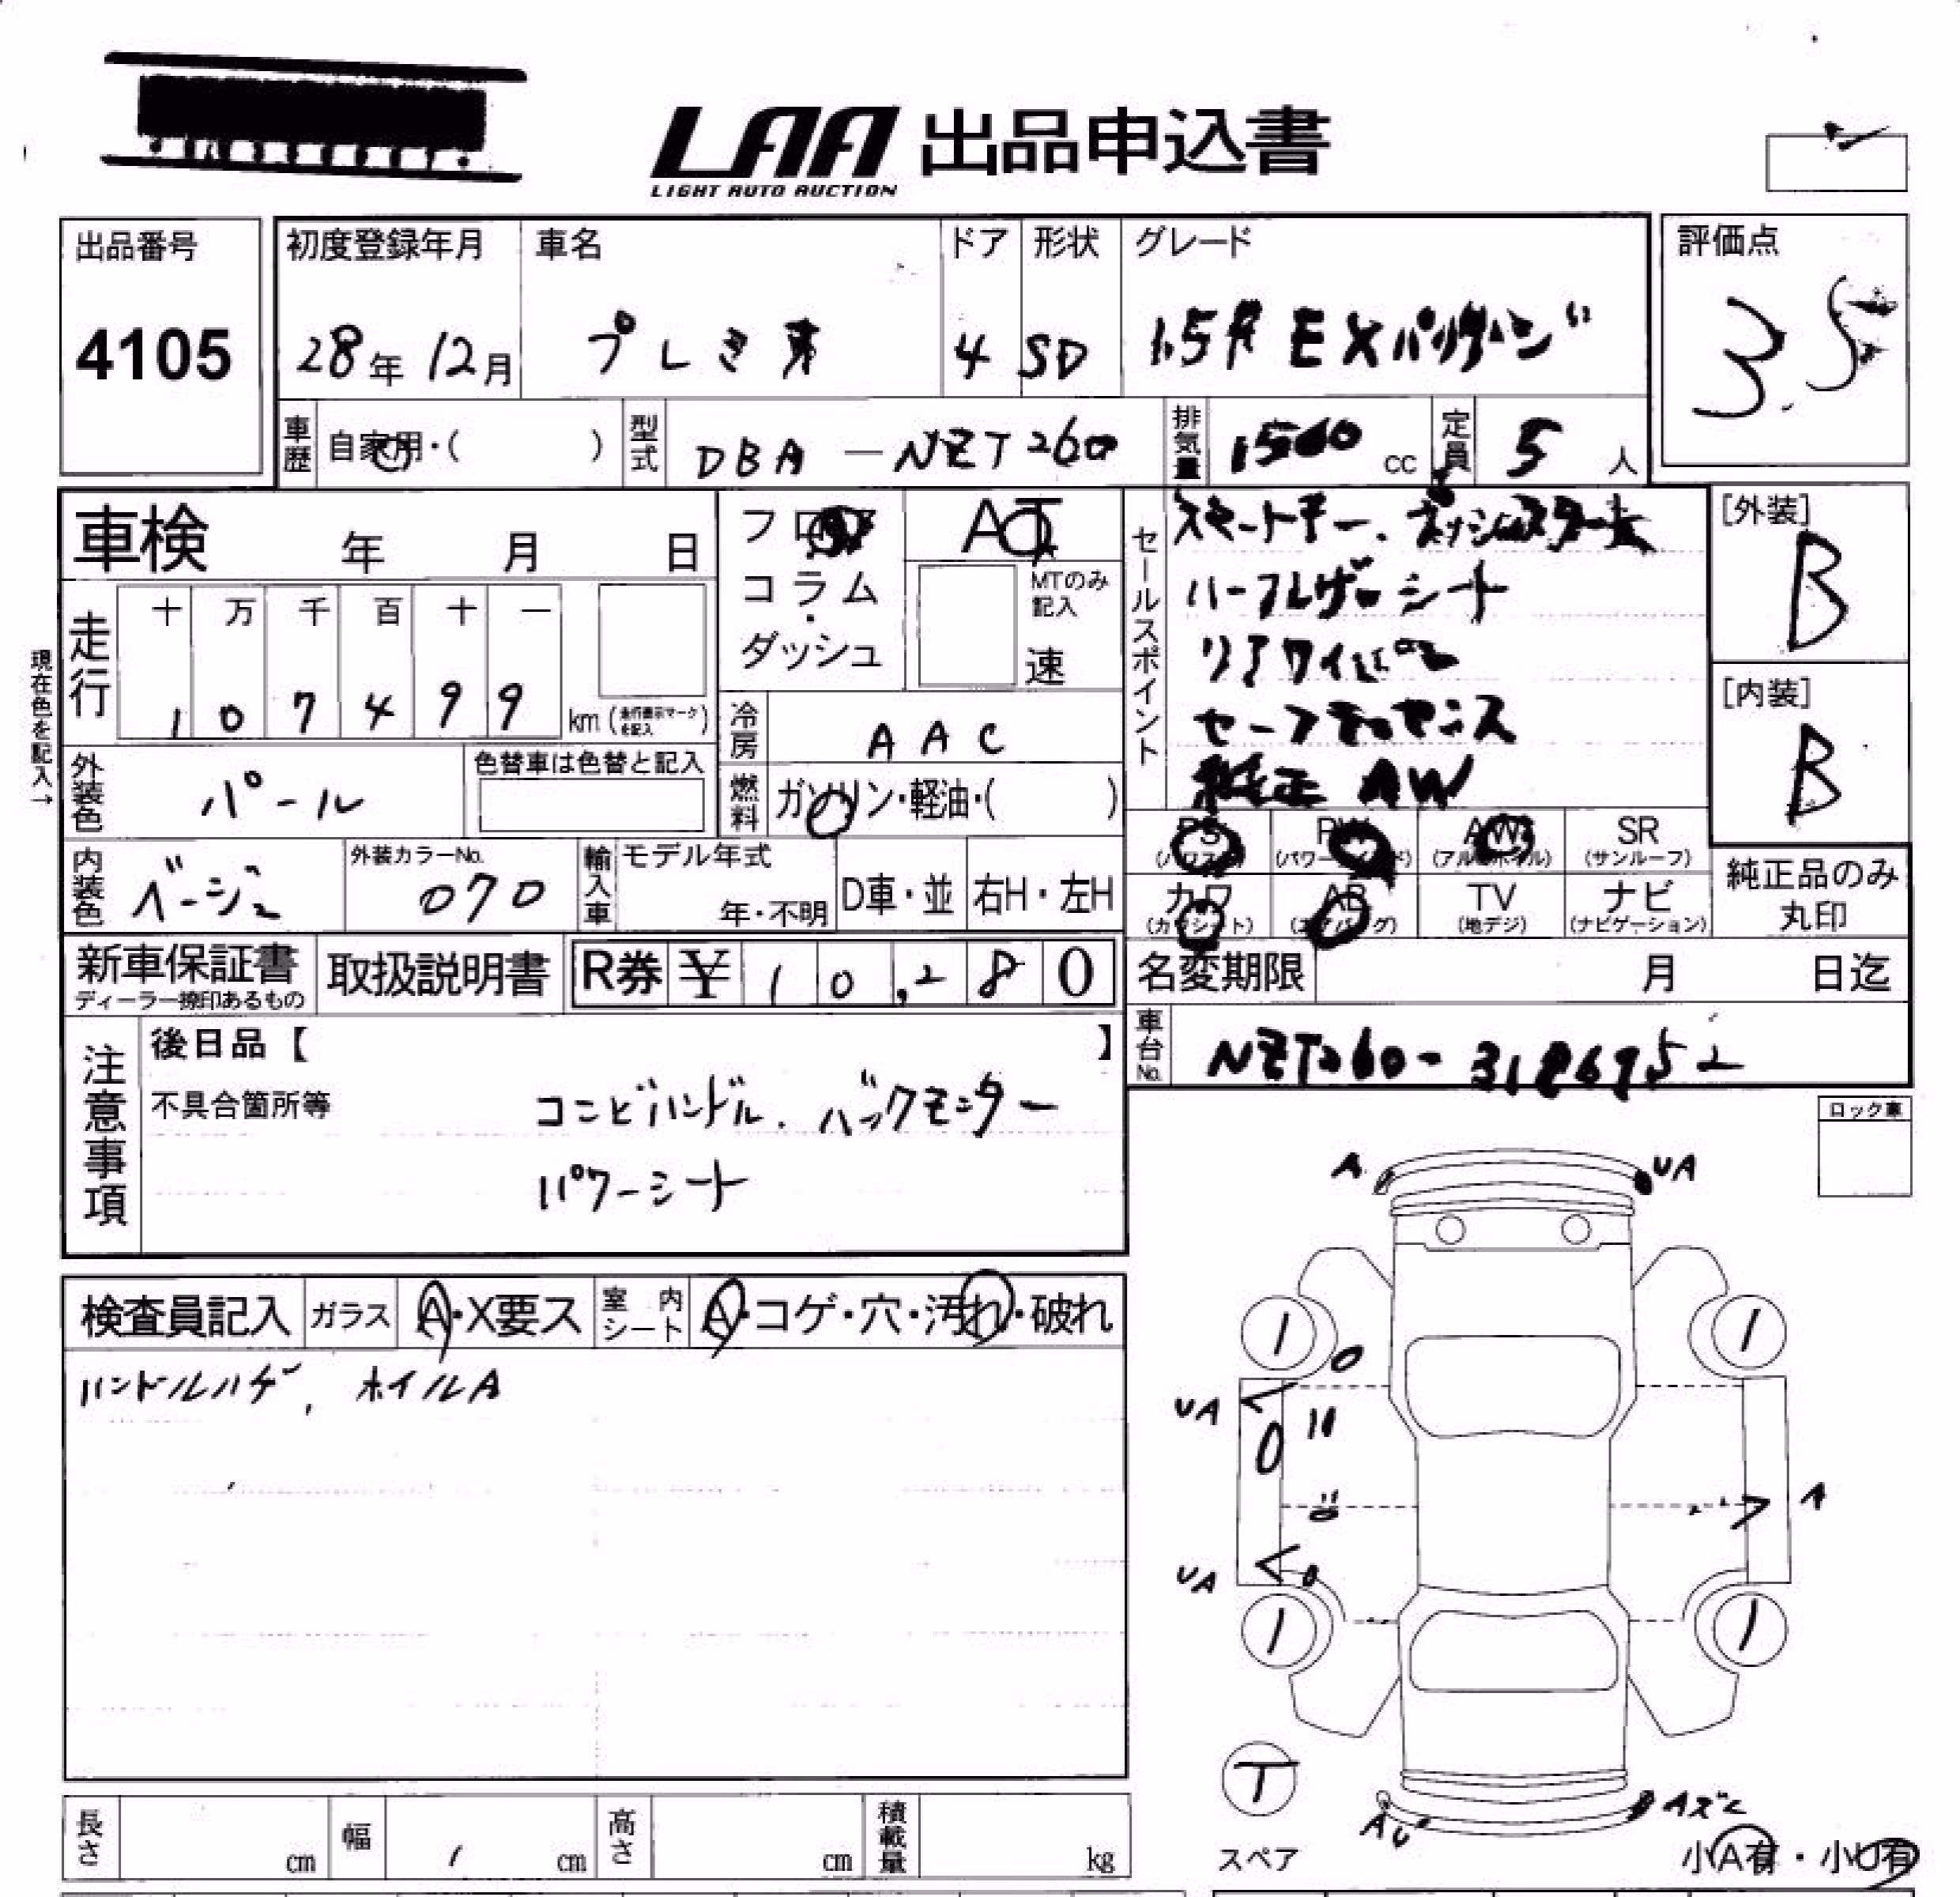 LAA 出品申込書
LIGHT AUTO AUCTION
出品番号
4105
初度登録年月
28年12月
車名
ドア
4
形状
SD
グレード
評価点
3.5
車歴
自家用・( )
型式
DBA-NZT260
排気量
1500 cc
定員
5 人
車検 年 月 日
フロア
コラム
・
ダッシュ
AT
MTのみ
記入
速
セールスポイント
スマートキー、プッシュスタート
ハーフレザーシート
リアワイパー
純正 AW
[外装]
B
[内装]
B
現在色を記入→
走行
十 万 千 百 十 一
1 0 7 4 9 9
km(走行表示マークを記入)
冷房
A A C
外装色
パール
色替車は色替と記入
燃料
ガソリン・軽油・( )
PS
(パワステ)
PW
(パワーウィンド)
AW
(アルミホイル)
SR
(サンルーフ)
内装色
ベージュ
外装カラーNo.
070
輸入車
モデル年式
年・不明
D車・並
右H・左H
カワ
(カワシート)
AB
(エアバッグ)
TV
(地デジ)
ナビ
(ナビゲーション)
純正品のみ
丸印
新車保証書
ディーラー捺印あるもの
取扱説明書
R券 ¥ 10,280
名変期限 月 日迄
車台No.
注意事項
後日品【 】
不具合箇所等
コンビハンドル、バックモニター
パワーシート
ロック車
A UA
検査員記入
ガラス
A・X要ス
室内シート
A・コゲ・穴・汚れ・破れ
ハンドルハゲ、ホイルA
UA
A
UA
T
スペア
AU
Aズレ
小A有・小U有
長さ cm
幅 cm
高さ cm
積載量 kg